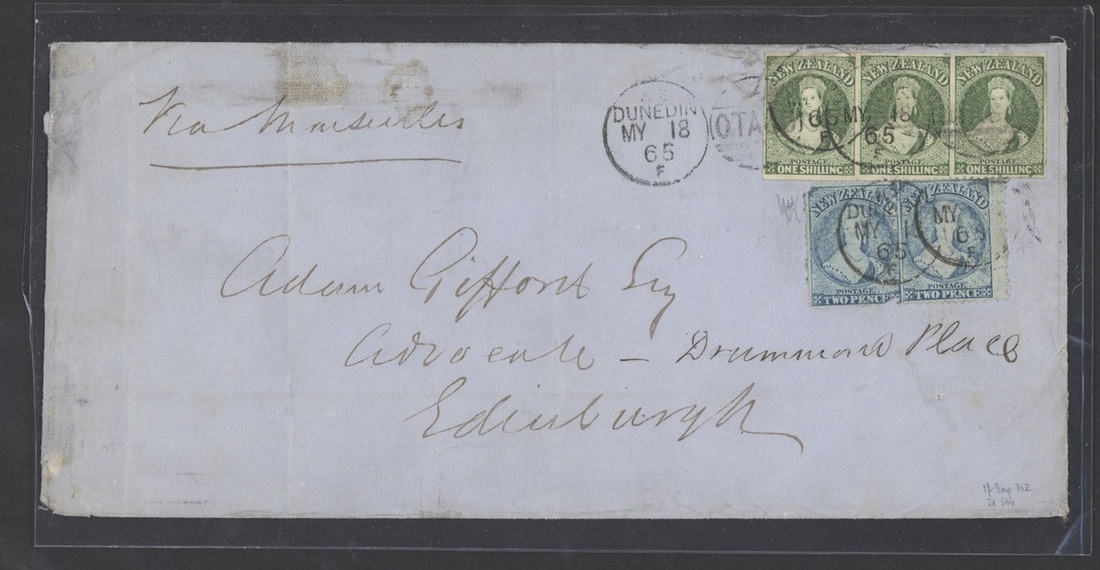 Via Marseilles
DUNEDIN
MY 18
65
F
OTA
NEW ZEALAND NEW ZEALAND NEW ZEALAND
65 MY 18
65
POSTAGE POSTAGE POSTAGE
ONE SHILLING ONE SHILLING ONE SHILLING
NEW ZEALAND NEW ZEALAND
DUNE MY
MY 18 65
65 F
F
POSTAGE POSTAGE
TWO PENCE TWO PENCE
Adam Gifford Esq
Advocate – Drummond Place
Edinburgh